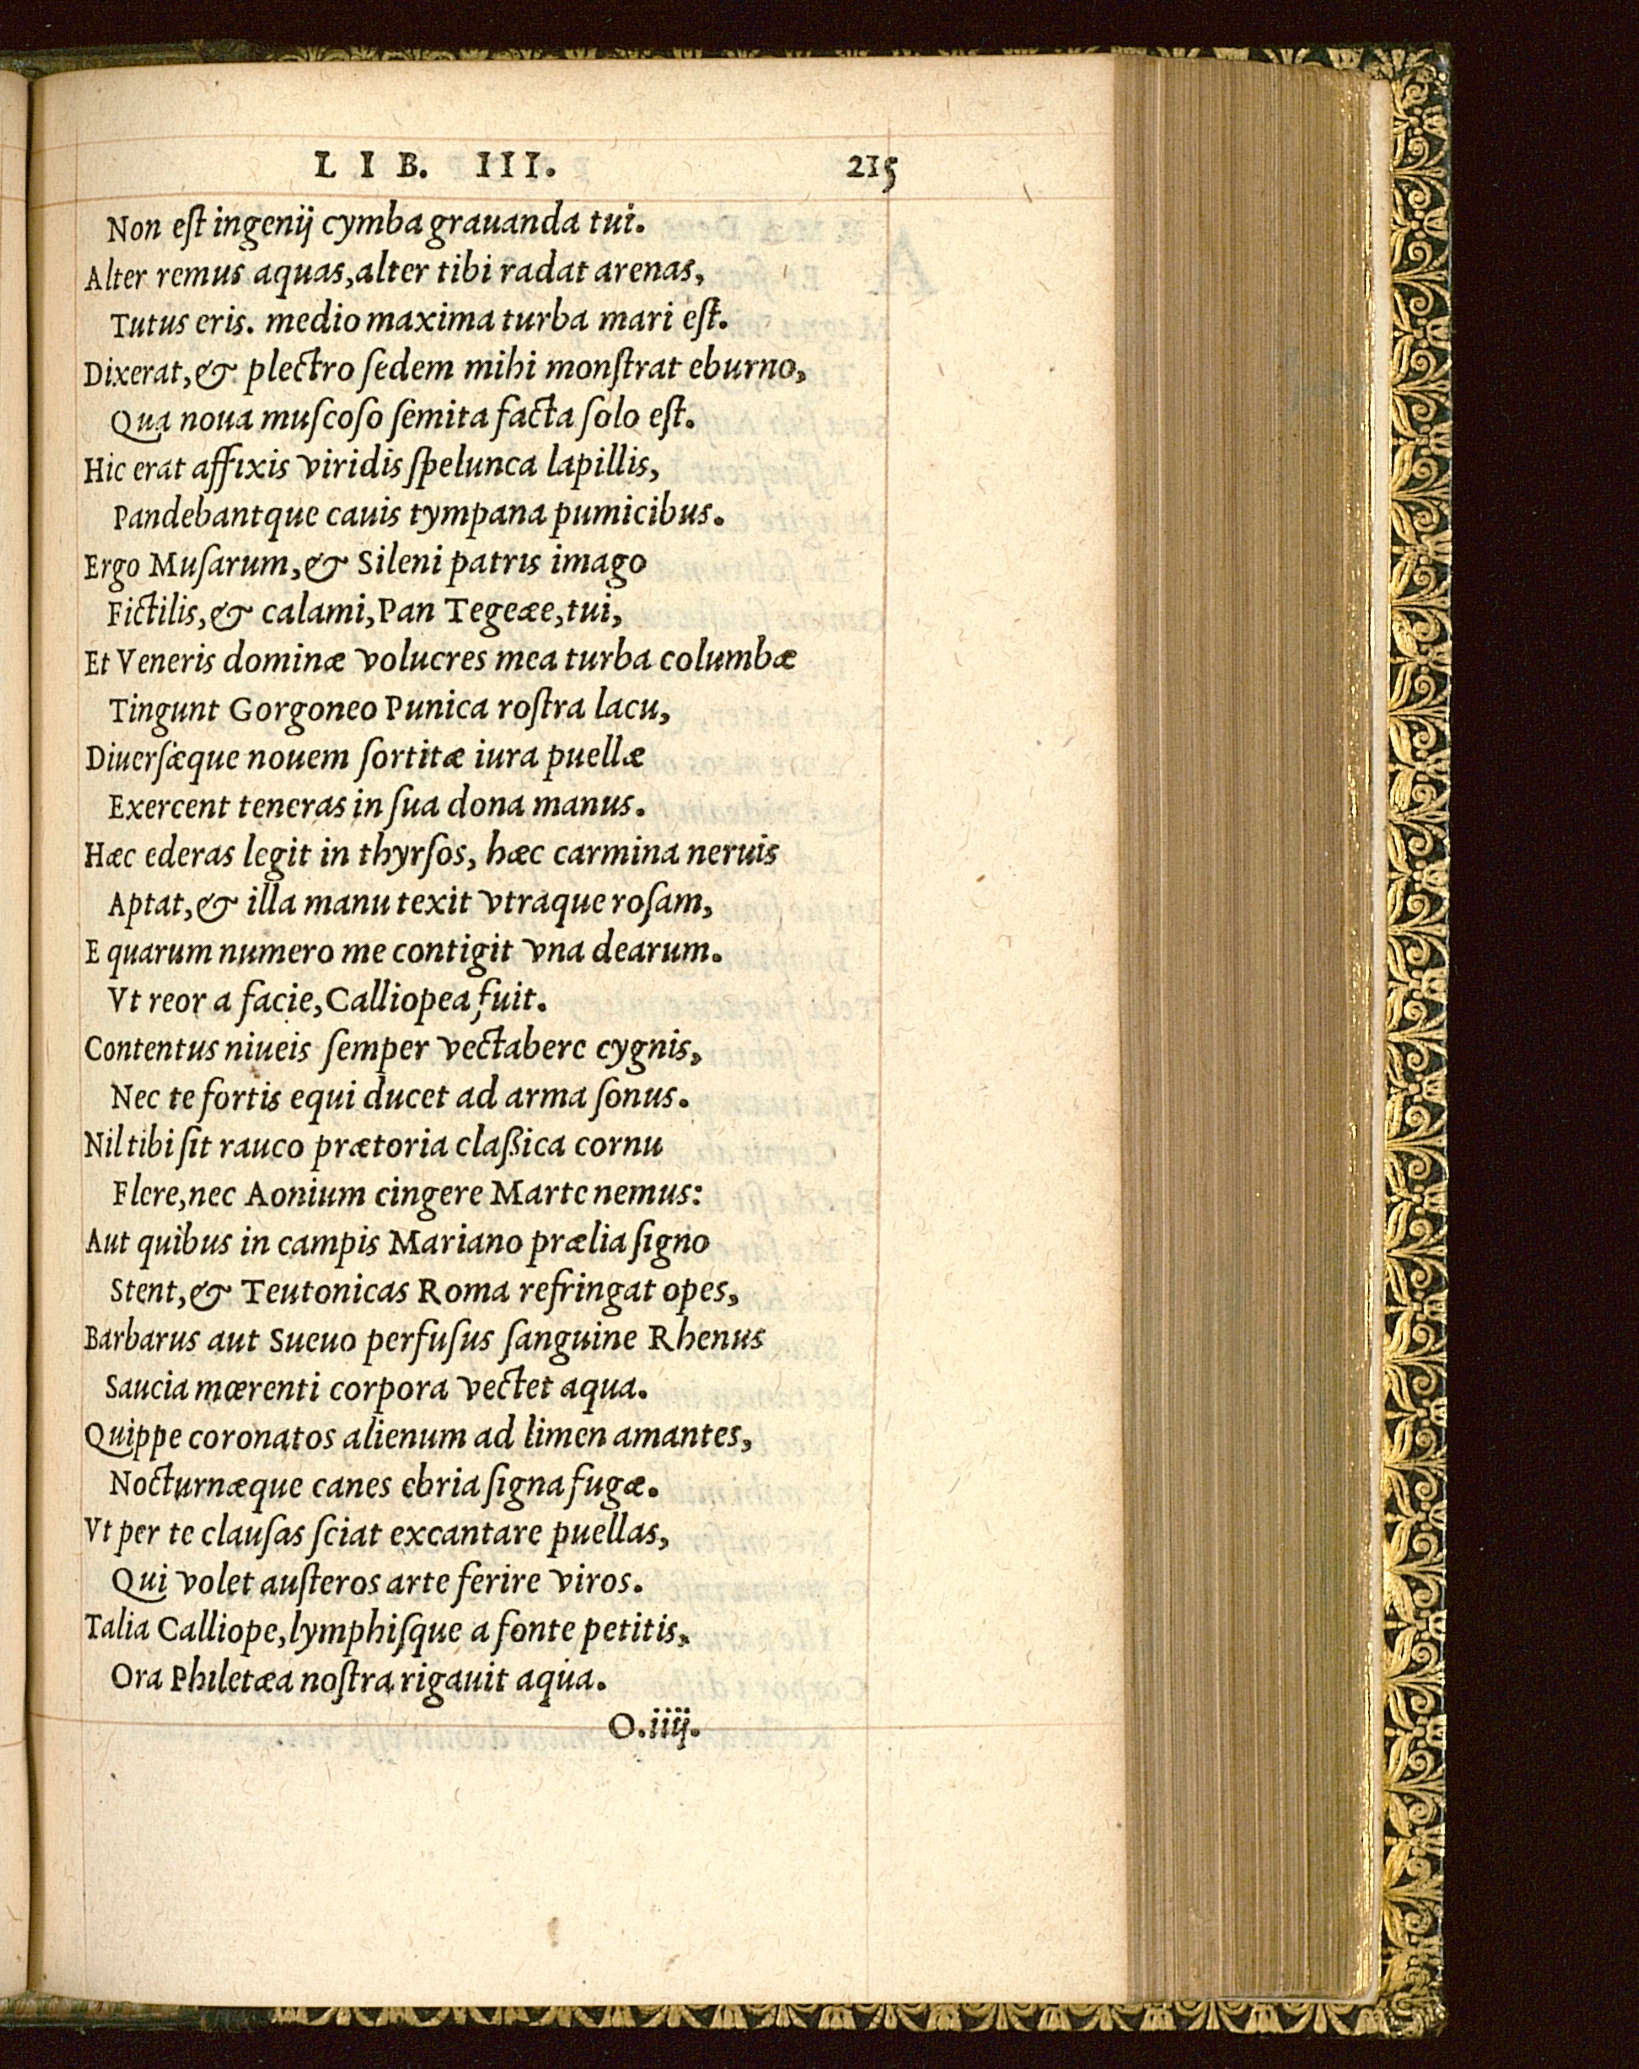 LIB. III. 215
Non eſt ingenij cymba grauanda tui.
Alter remus aquas, alter tibi radat arenas,
Tutus eris. medio maxima turba mari eſt.
Dixerat, & plectro ſedem mihi monſtrat eburno,
Qua noua muſcoſo ſemita facta ſolo eſt.
Hic erat affixis viridis ſpelunca lapillis,
Pandebantque cauis tympana pumicibus.
Ergo Muſarum, & Sileni patris imago
Fictilis, & calami, Pan Tegeæe, tui,
Et Veneris dominæ volucres mea turba columbæ
Tingunt Gorgoneo Punica roſtra lacu,
Diuerſæque nouem ſortitæ iura puellæ
Exercent teneras in ſua dona manus.
Hæc ederas legit in thyrſos, hæc carmina neruis
Aptat, & illa manu texit vtraque roſam,
E quarum numero me contigit vna dearum.
Vt reor a facie, Calliopea fuit.
Contentus niueis ſemper vectabere cygnis,
Nec te fortis equi ducet ad arma ſonus.
Nil tibi ſit rauco prætoria claßica cornu
Flere, nec Aonium cingere Marte nemus:
Aut quibus in campis Mariano prælia ſigno
Stent, & Teutonicas Roma refringat opes,
Barbarus aut Sueuo perfuſus ſanguine Rhenus
Saucia mœrenti corpora vectet aqua.
Quippe coronatos alienum ad limen amantes,
Nocturnæque canes ebria ſigna fugæ.
Vt per te clauſas ſciat excantare puellas,
Qui volet auſteros arte ferire viros.
Talia Calliope, lymphiſque a fonte petitis,
Ora Philetæa noſtra rigauit aqua.
O.iiij.